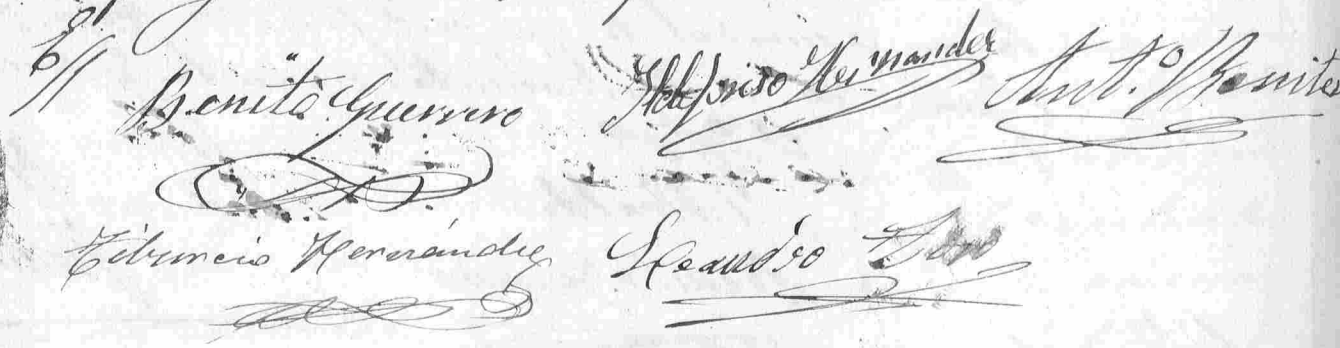 Benita Guerrero Ildefonso Hernandez Ant.º Benitez
Tiburcio Hernández Leandro